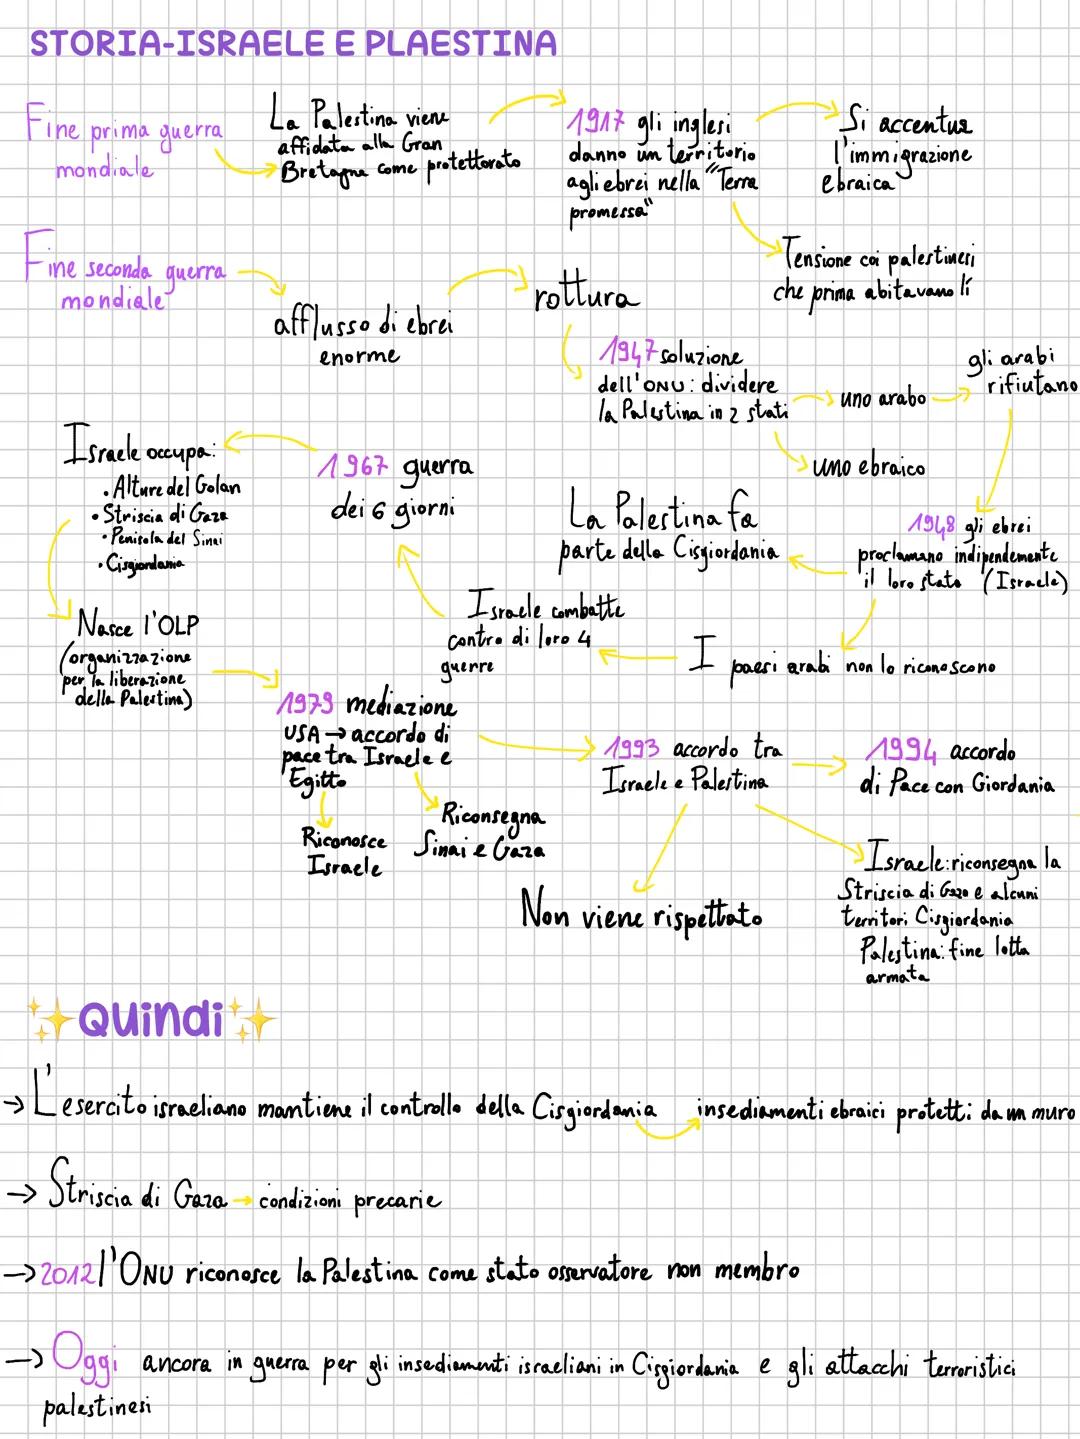 STORIA-ISRAELE E PLAESTINA
Fine prima guerra
mondiale
La Palestina viene
affidata alla Gran
Bretagna come protettorato
1917 gli inglesi
danno un territorio
agli ebrei nella "Terra
promessa"
Si accentua
l'immigrazione
ebraica
Tensione coi palestinesi
che prima abitavano lí
Fine seconda guerra
mondiale
afflusso di ebrei
enorme
rottura
1947 soluzione
dell'ONU: dividere
la Palestina in 2 stati
uno arabo
gli arabi
rifiutano
uno ebraico
1948 gli ebrei
proclamano indipendemente
il loro stato (Israele)
La Palestina fa
parte della Cisgiordania
I paesi arabi non lo riconoscono
Israele combatte
contro di loro 4
guerre
1967 guerra
dei 6 giorni
Israele occupa:
• Alture del Golan
• Striscia di Gaza
• Penisola del Sinai
• Cisgiordania
Nasce l'OLP
(organizzazione
per la liberazione
della Palestina)
1979 mediazione
USA → accordo di
pace tra Israele e
Egitto
Riconosce
Israele
Riconsegna
Sinai e Gaza
1993 accordo tra
Israele e Palestina
1994 accordo
di Pace con Giordania
Non viene rispettato
Israele: riconsegna la
Striscia di Gaza e alcuni
territori Cisgiordania
Palestina: fine lotta
armata
✨Quindi✨
→ L'esercito israeliano mantiene il controllo della Cisgiordania insediamenti ebraici protetti da un muro
→ Striscia di Gaza → condizioni precarie
→ 2012 l'ONU riconosce la Palestina come stato osservatore non membro
→ Oggi ancora in guerra per gli insediamenti israeliani in Cisgiordania e gli attacchi terroristici
palestinesi